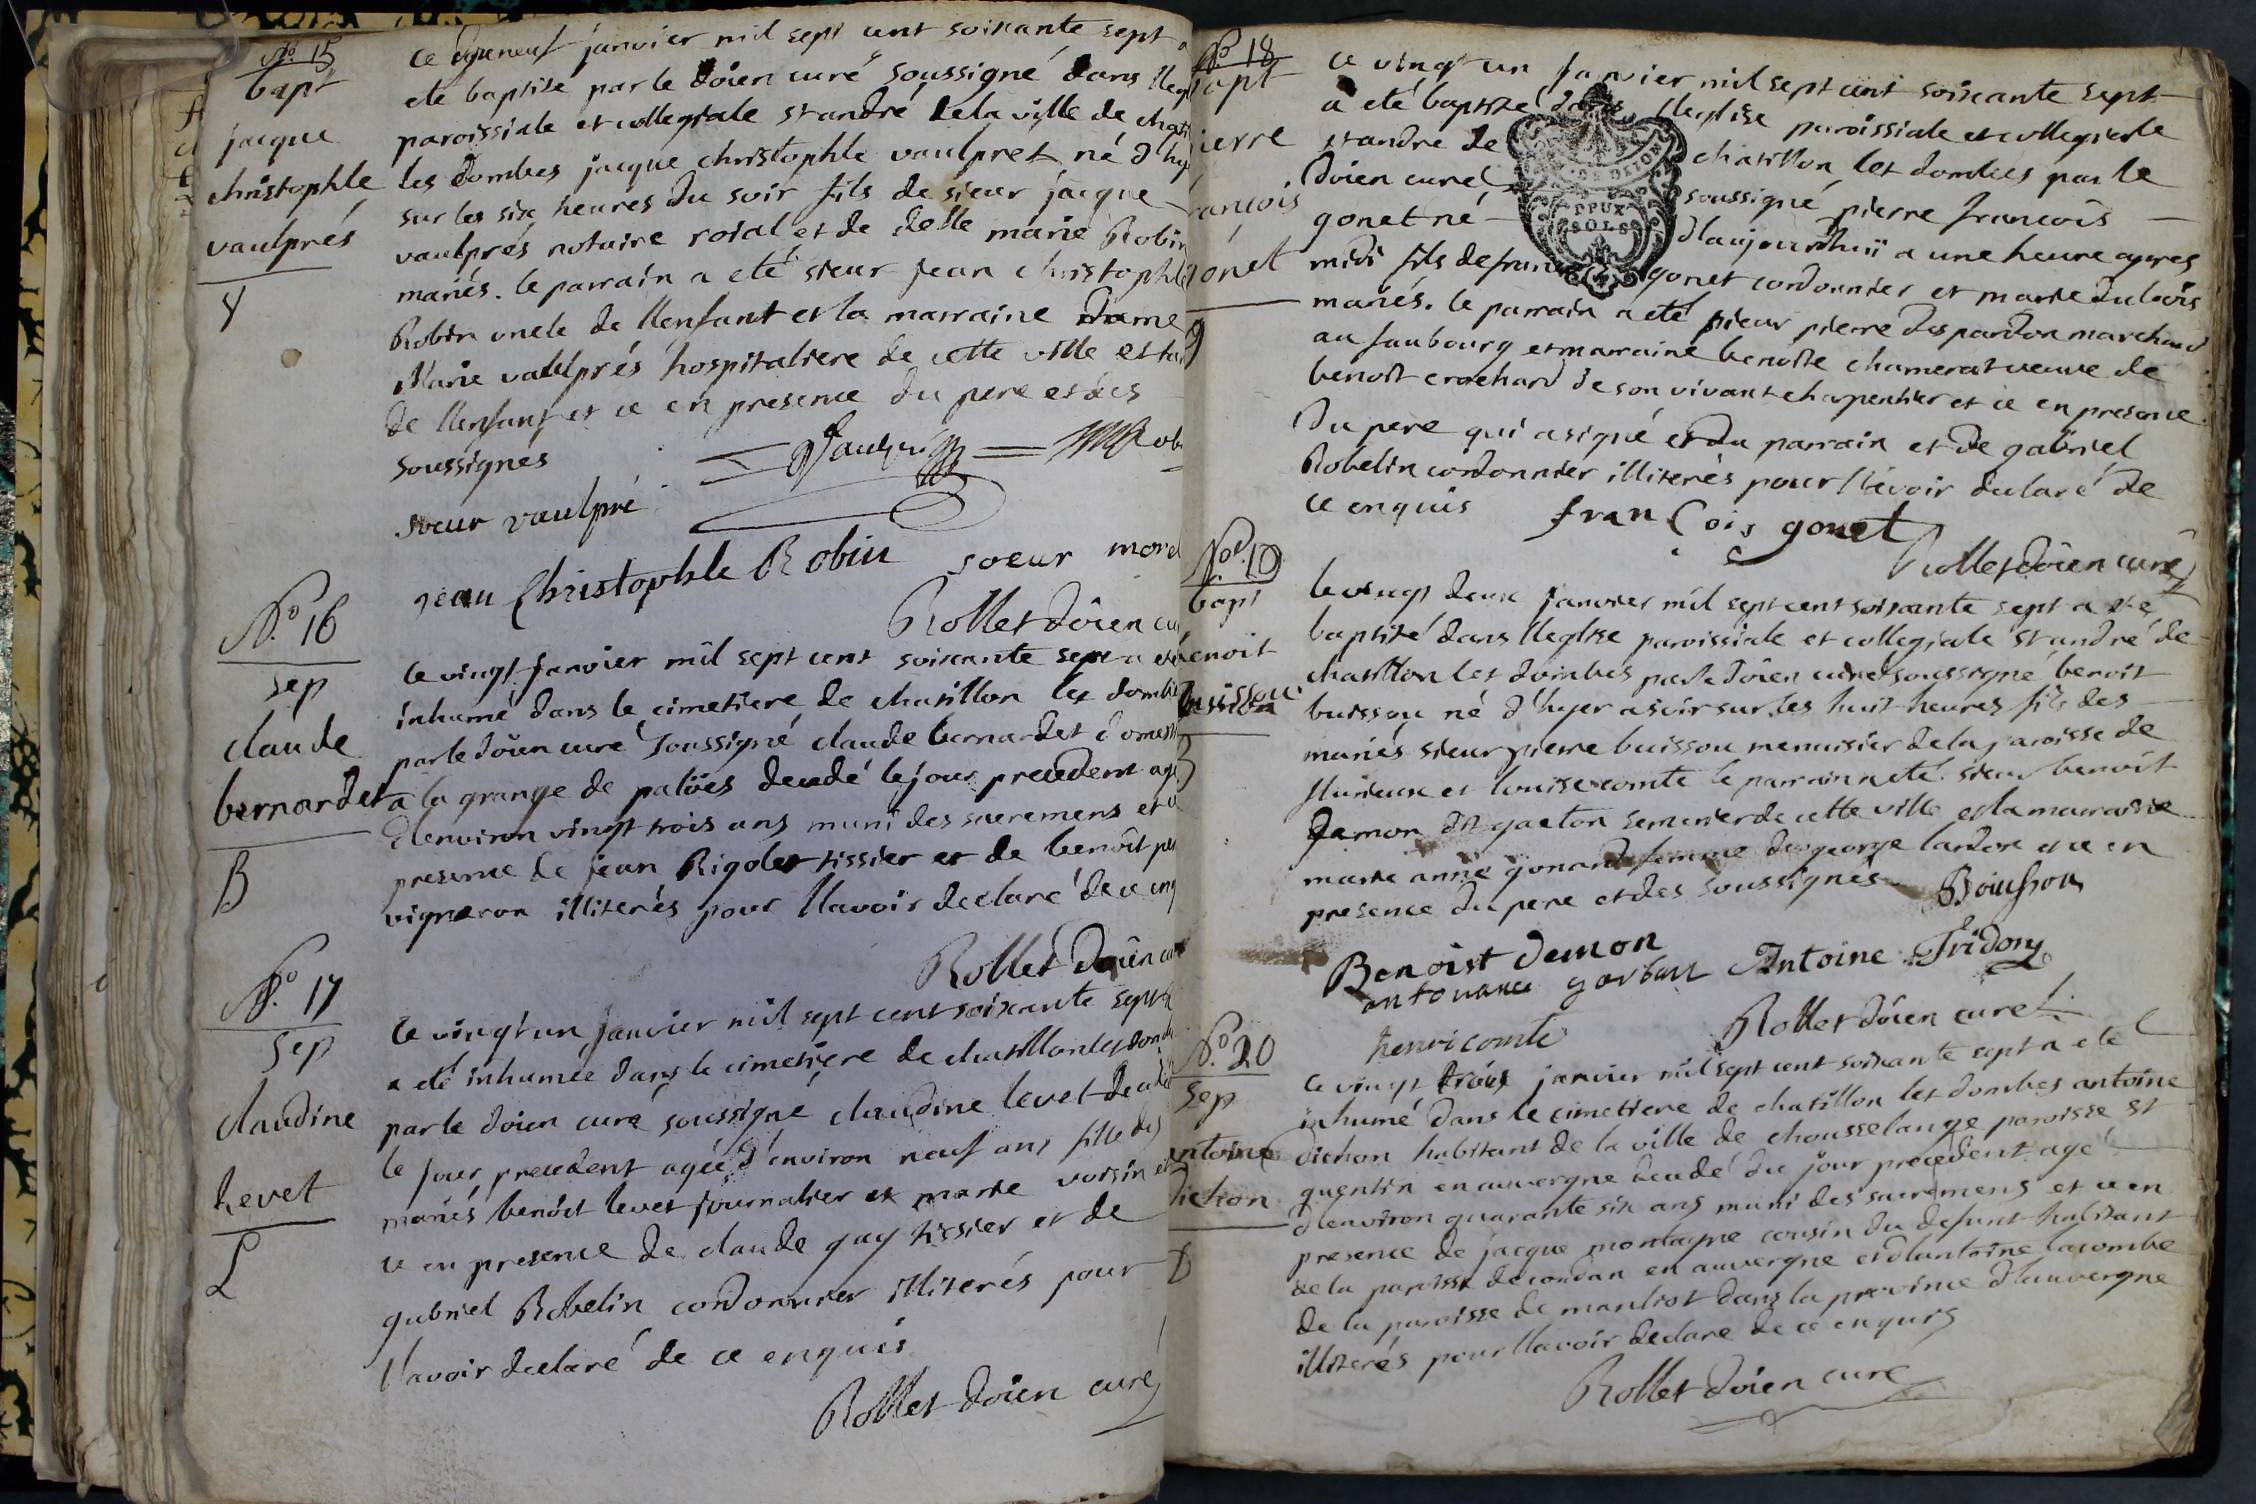 No 15
bapt
jacque
christophle
vaulprés
V
ce dixneuf janvier mil sept cent soixante sept a
eté baptisé par le doïen curé soussigné dans l'egl
paroissiale et collegiale st andré de la ville de chati
les dombes jacque christophle vaulpret né d'hy
sur les six heures du soir fils de sieur jacque
vaulprés notaire roial et de delle marie Robin
mariés. le parrain a eté sieur jean christophle
Robin oncle de l'enfant et la marraine dame
Marie vaulprés hospitaliere de cette ville et ta
de l'enfant et ce en presence du pere et des
soussignés
Vaulpré Robi
soeur vaulpré
jean Christophle Robin soeur morel
Rollet doïen cu
No. 16
sep
claude
bernardet
B
le vingt janvier mil sept cent soixante sept a eté
inhumé dans le cimetiere de chatillon les dombe
par le doïen curé soussigné claude bernardet domesti
a la grange de paloïes decedé le jour precedent agé
d'environ vingt trois ans muni des sacremens et
presence de jean Rigolet tissier et de benoît pe
vigneron illiterés pour l'avoir declaré de ce enq
Rollet doïen cu
No. 17
sep
claudine
Levet
L
le vingt un janvier mil sept cent soixante sept
a eté inhumée dans le cimetiere de chatillon les domb
par le doïen curé soussigné claudine levet decedé
le jour precedent agée d'environ neuf ans fille des
mariés benoit levet journalier et marie voisin et
ce en presence de claude guy tissier et de
gabriel Robelin cordonnier illiterés pour
l'avoir declaré de ce enquis
Rollet doïen curé
No 18
bapt
ierre
rançois
gonet
g
ce vingt un janvier mil sept cent soixante sept
a eté baptisé dans l'eglise paroissiale et collegiale
st andre de chatillon les dombes par le
doïen curé soussigné pierre francois
gonet né d'aujourdhuï a une heure apres
midi fils de francois gonet cordonnier et marie dubois
mariés. le parrain a eté sieur pierre desparon marchand
au faubourg et marraine benoîte chamerat veuve de
benoît crochard de son vivant charpentier et ce en presence
du pere qui a signé et du parrain et de gabriel
Robelin cordonnier illiterés pour l'avoir declaré de
ce enquis françois gonet
Rollet doïen curé
DEUX
SOLS
No. 19
bapt
benoit
buisson
le vingt deux janvier mil sept cent soixante sept a eté
baptisé dans l'eglise paroissiale et collegiale st andré de
chatillon les dombes par le doïen curé soussigné benoit
buisson né d'hyer a soir sur les huit heures fils des
mariés sieur pierre buisson menuisier de la paroisse de
flurieux et louise comte le parrain a eté sieur benoit
Demon dit gaeton serrurier de cette ville et la marraine
marie anne gonard femme de george et ce en
presence du pere et des soussignés Boiusson
Benoist demon Antoine Tridon
henri comte
Rollet doïen curé
No. 20
sep
antoine
dichon
D
ce vingt trois janvier mil sept cent soixante sept a eté
inhumé dans le cimetiere de chatillon les dombes antoine
dichon habitant de la ville de chousselange paroisse st
quentin en auvergne decedé du jour precedent agé
d'environ quarante six ans muni des sacremens et ce en
presence de jacque montagne cousin du defunt habitant
de la paroisse de condan en auvergne et d'antoine lacombe
de la paroisse de manliot dans la province d'auvergne
illiterés pour l'avoir declare de ce enquis
Rollet doïen curé